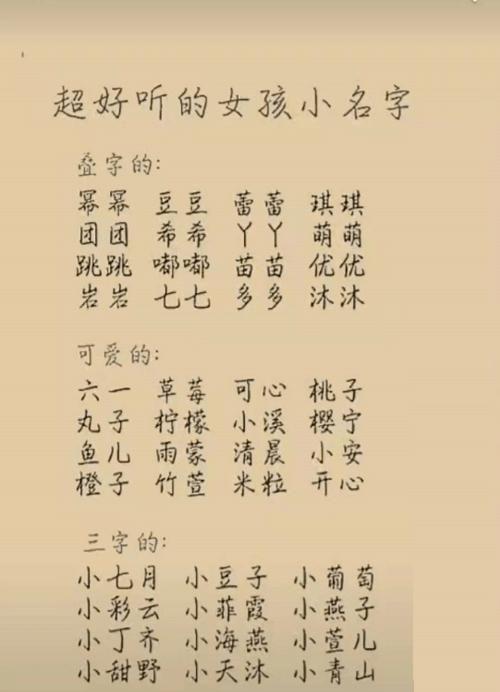 超好听的女孩小名字
叠字的:
幂幂 豆豆 蕾蕾 琪琪
团团 希希 丫丫 萌萌
跳跳 嘟嘟 苗苗 优优
岩岩 七七 多多 沐沐
可爱的:
六一 草莓 可心 桃子
丸子 柠檬 小溪 樱宁
鱼儿 雨蒙 清晨 小安
橙子 竹萱 米粒 开心
三字的:
小七月 小豆子 小葡萄
小彩云 小菲霞 小燕子
小丁齐 小海燕 小萱儿
小甜野 小天沐 小青山